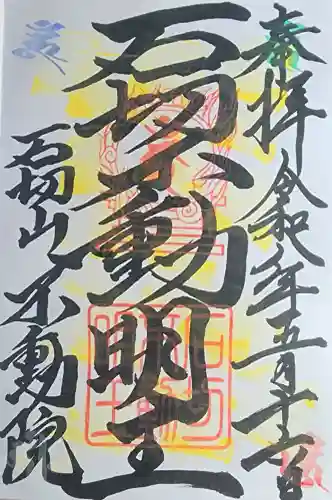 奉拝 令和 年五月十 日
石切不動明王
石切山不動院